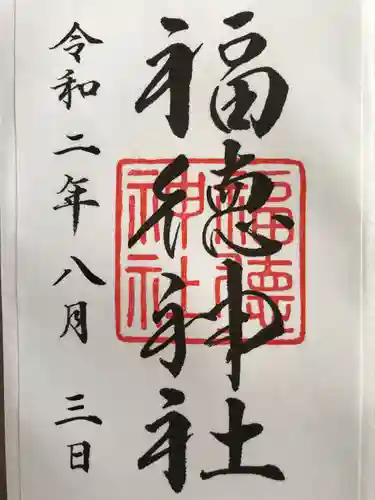 福徳神社
福徳神社
令和二年八月三日